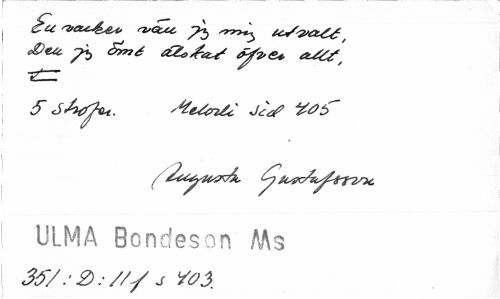 En vacker vän jag mig utvalt,
Den jag ömt älskat öfver allt,
5 strofer. Melodi sid 405
Augusta Gustafsson
ULMA Bondeson Ms
351:D:11 f s 403.